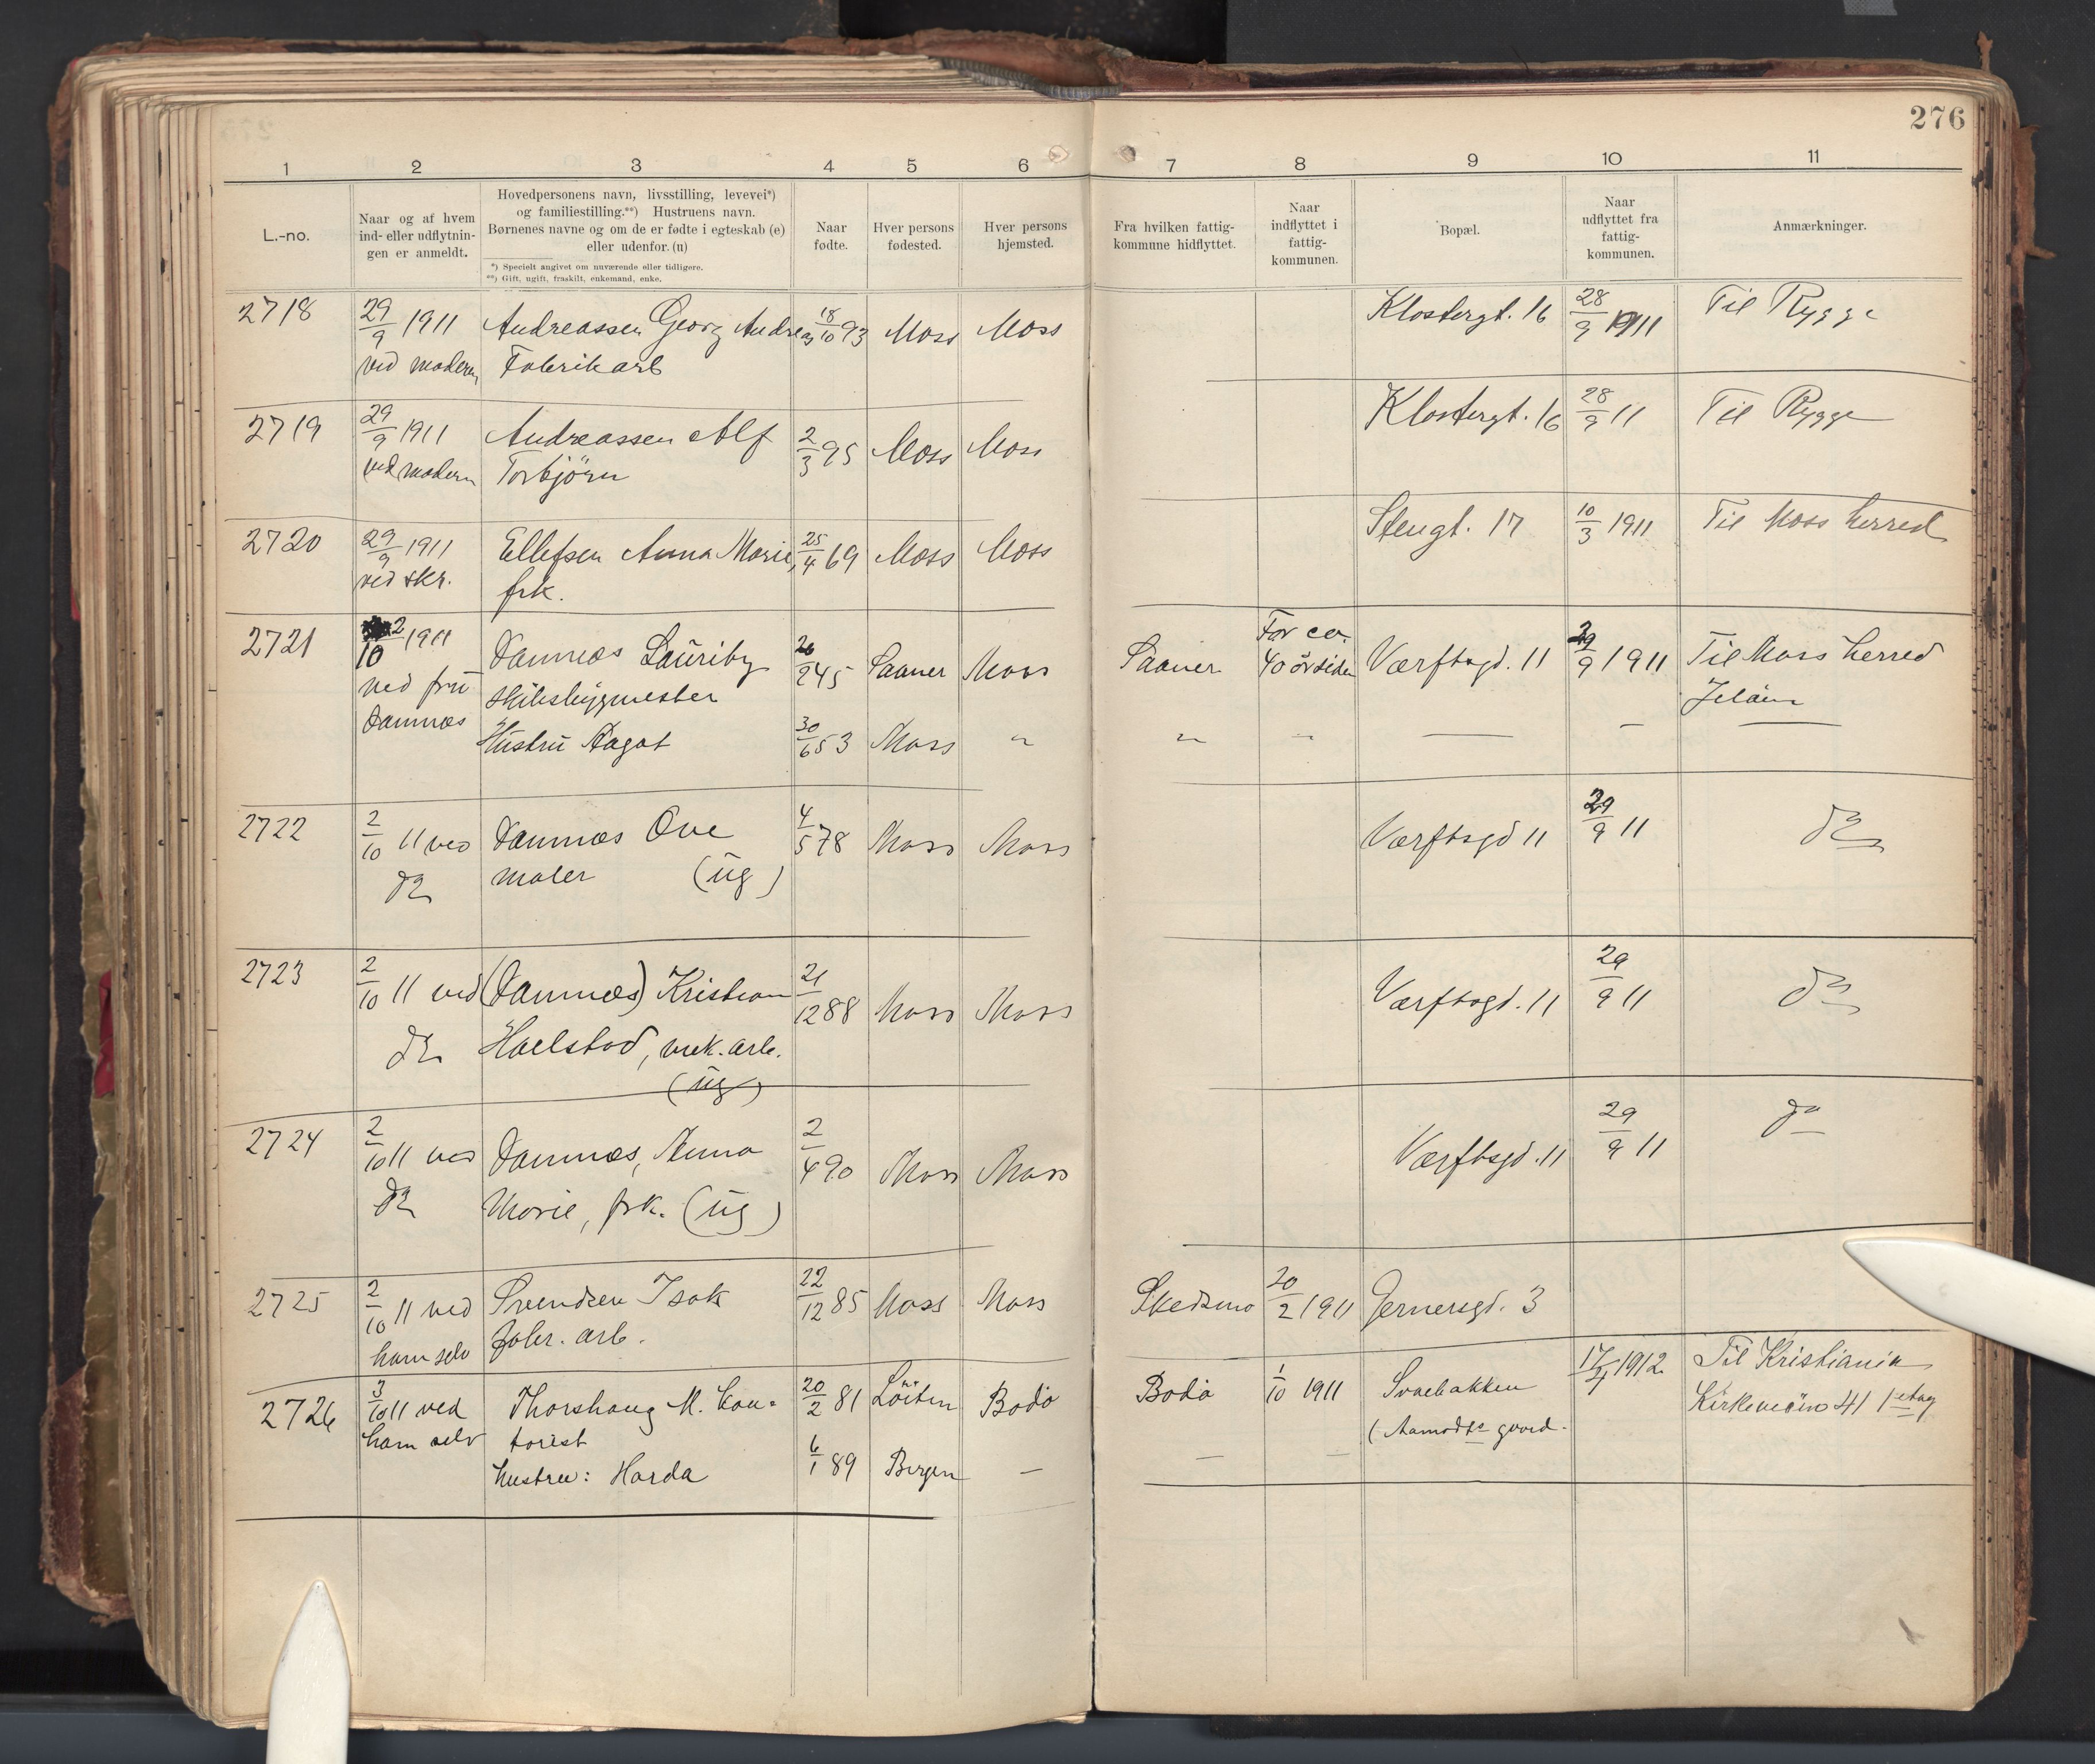 276
1 2 3 4 5 6 7 8 9 10 11
L.-no.
Naar og af hvem
ind- eller udflytnin-
gen er anmeldt.
Hovedpersonens navn, livsstilling, levevei*)
og familiestilling.**) Hustruens navn.
Børnenes navne og om de er fødte i egteskab (e)
eller udenfor. (u)
*) Specielt angivet om nuværende eller tidligere.
**) Gift, ugift, fraskilt, enkemand, enke.
Naar
fødte.
Hver persons
fødested.
Hver persons
hjemsted.
Fra hvilken fattig-
kommune hidflyttet.
Naar
indflyttet i
fattig-
kommunen.
Bopæl.
Naar
udflyttet fra
fattig-
kommunen.
Anmærkninger.
2718 29/9 1911 Andreassen Georg Andreas 18/10 93 Moss Moss Klostergt. 16 28/9 1911 Til Rygge
ved moderen Fabrikarb
2719 29/9 1911 Andreassen Alf 2/3 95 Moss Moss Klostergt. 16 28/9 11 Til Rygge
ved modern Torbjörn
2720 29/9 1911 Ellefsen Anna Marie, 25/4 69 Moss Moss Stengt. 17 10/3 1911 Til Moss herred
ved skr. frk.
2721 2/10 1911 Damnæs Lauritz 26/2 45 Saaner Moss Saaner For ca. 40 år siden Værftsgd. 11 29/9 1911 Til Moss herred
ved frü skibsbygmester Jelöen
Damnæs Hüstrü Aagot 30/6 53 Moss " " " — — —
2722 2/10 11 ved Damnæs Ove 4/5 78 Moss Moss Værftsgd 11 29/9 11 do
do maler (üg)
2723 2/10 11 ved (Damnæs) Kristian 21/12 88 Moss Moss Værftsgd. 11 29/9 11 do
do Haelstad, mek. arb.
(üg)
2724 2/10 11 ved Damnæs, Anna 2/4 90 Moss Moss Værftsgd. 11 29/9 11 do
do Marie, frk. (üg)
2725 2/10 11 ved Svendsen Isak 22/12 85 Moss Moss Skedsmo 20/2 1911 Gernersgd. 3
ham selv fabr. arb.
2726 3/10 11 ved Thorshaug M. kon- 20/2 81 Löiten Bodö Bodö 1/10 1911 Svaebakken 17/4 1912 Til Kristiania
ham selv torist (Aamodts gaard. Kirkeveien 41 1 etag
hustru: Harda 6/1 89 Bergen — — —